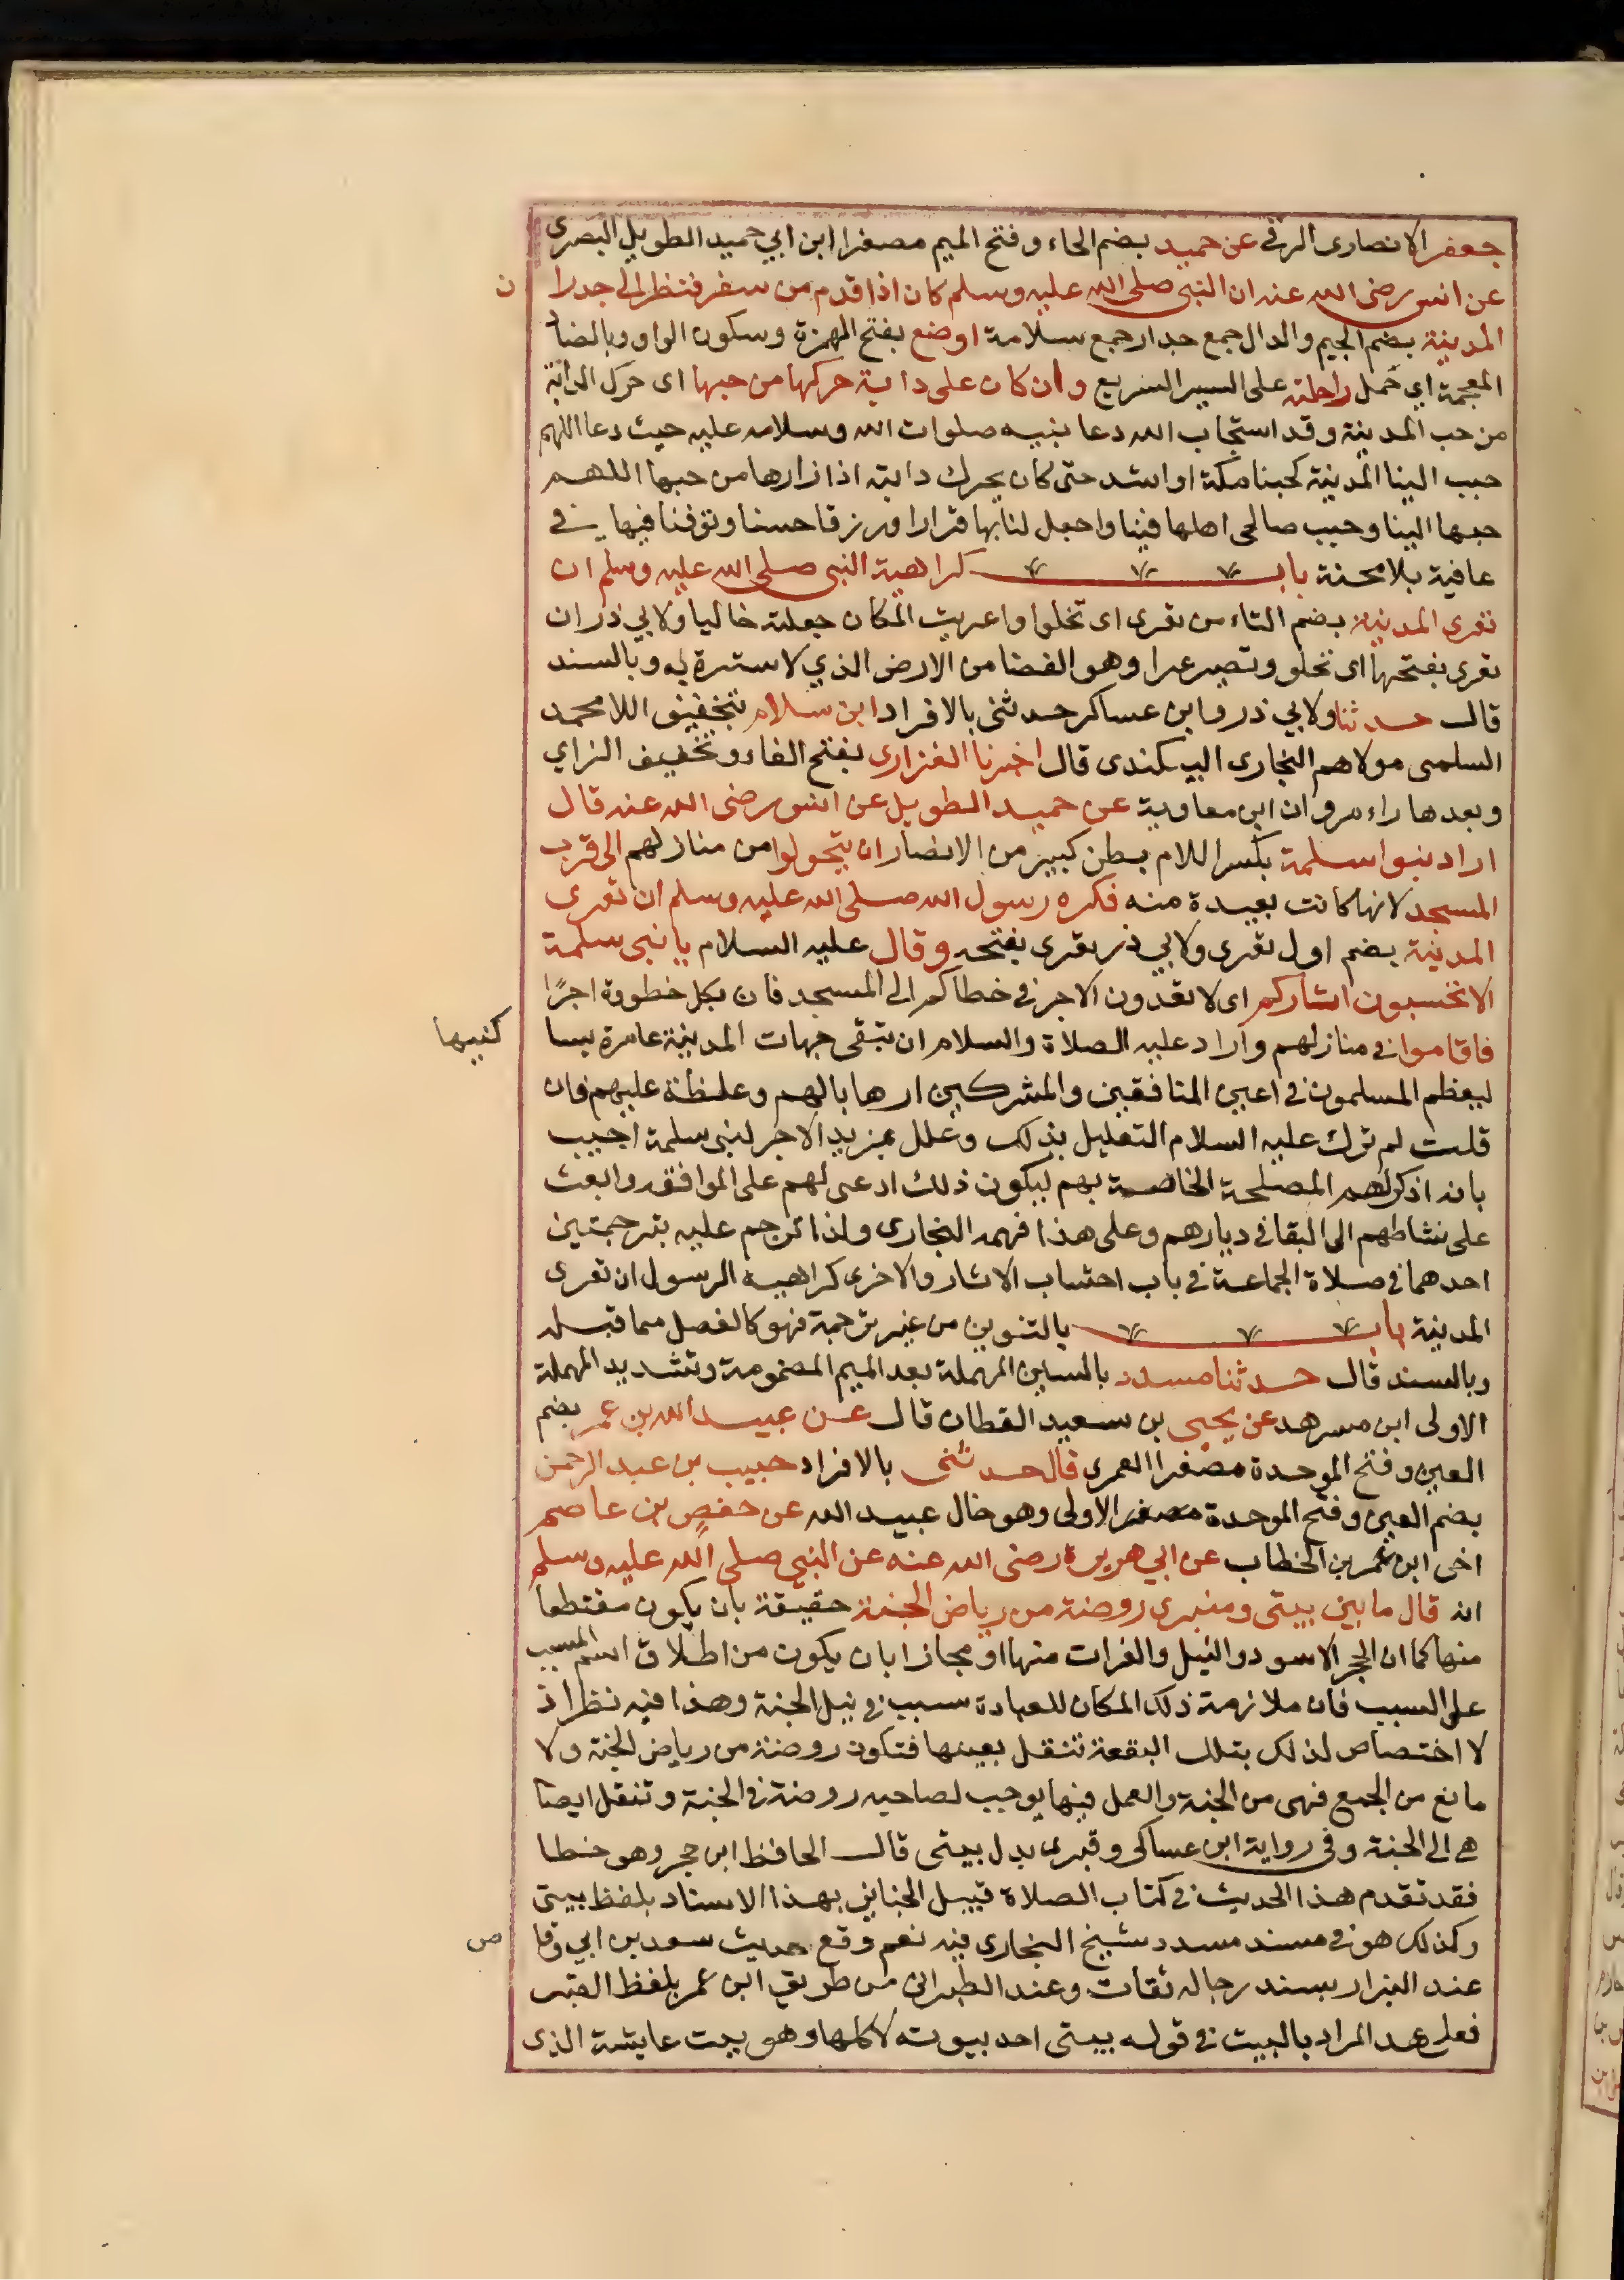 جعفر الانصارى الزرقي عن حميد بضم الحاء وفتح الميم مصغرا ابن ابي حميد الطويل البصرى
عن انس رضى الله عنه ان النبى صلى الله عليه وسلم كان اذا قدم من سفر فنظر الى جدرا ن
المدينة بضم الجيم والدال جمع جدار جمع سلامة اوضع بفتح الهمزة وسكون الواو وبالضاد
المعجمة اي حمل راحلته على السير السريع وان كان على دابة حركها من حبها اى حرك الدابة
من حب المدينة وقد استجاب الله دعا بنيه صلوات الله وسلامه عليه حيث دعا اللهم
حبب الينا المدينة كحبنا مكة او اشد حتى كان يحرك دابته اذا زارها من حبها اللهم
حببها الينا وحبب صالحى اهلها فينا واجعل لنا بها قرارا ورزقا حسنا وتوفنا فيها في
عافية بلا محنة باب كراهية النبى صلى الله عليه وسلم ان
تعرى المدينة بضم التاء من تعرى اى تخلوا واعريت المكان جعلته خاليا ولابي ذر ان
تعرى بفتحها اى تخلو وتصير عرا وهو الفضا من الارض الذي لا سترة به وبالسند
قال حدثنا ولابي ذر وابن عساكر حدثنى بالافراد ابن سلام بتخفيف اللام محمد
السلمى مولاهم البخارى البيكندى قال اخبرنا الفزارى بفتح الفاء وتخفيف الزاي
وبعدها راء مروان ابن معاوية عن حميد الطويل عن انس رضى الله عنه قال
اراد بنوا سلمة بكسر اللام بطن كبير من الانصار ان يتحولوا من منازلهم الى قرب
المسجد لانها كانت بعيدة منه فكره رسول الله صلى الله عليه وسلم ان تعرى
المدينة بضم اول تعرى ولابي ذر تعرى بفتحه وقال عليه السلام يا بنى سلمة
الا تحتسبون اثاركم اى لا تعدون الاجر في خطاكم الى المسجد فان بكل خطوة اجرًا
فاقاموا في منازلهم واراد عليه الصلاة والسلام ان تبقى جهات المدينة عامرة بسا كنيها
ليعظم المسلمون في اعين المنافقين والمشركين ارهابا لهم وغلظة عليهم فان
قلت لم ترك عليه السلام التعليل بذلك وعلل بمزيد الاجر لبنى سلمة اجيب
بانه اذكر لهم المصلحة الخاصة بهم ليكون ذلك ادعى لهم على الموافقه وابعث
على نشاطهم الى البقا في ديارهم وعلى هذا فهمه البخارى ولذا ترجم عليه بترجمتين
احدهما في صلاة الجماعة في باب احتساب الاثار والاخرى كراهية الرسول ان تعرى
المدينة باب بالتنوين من غير ترجمة فهو كالفصل مما قبله
وبالسند قال حدثنا مسدد بالسين المهملة بعد الميم المضمومة وتشديد المهملة
الاولى ابن مسرهد عن يحيى بن سعيد القطان قال عن عبيد الله بن عمر بضم
العين وفتح الموحدة مصغرا العمرى قال حدثنى بالافراد حبيب بن عبد الرحمن
بضم العين وفتح الموحدة مصغر الاولى وهو خال عبيد الله عن حفصٍ بن عاصم
اخى ابن عمر بن الخطاب عن ابي هريرة رضى الله عنه عن النبى صلى الله عليه وسلم
انه قال ما بين بيتى ومنبرى روضة من رياض الجنة حقيقة بان يكون مقتطعا
منها كما ان الحجر الاسود والنيل والفرات منها او مجازا بان يكون من اطلاق اسم المسبب
على السبب فان ملازمة ذلك المكان للعبادة سبب في نيل الجنة وهذا فيه نظر اذ
لا اختصاص لذلك بتلك البقعة تنتقل بعينها فتكون روضة من رياض الجنة ولا
مانع من الجمع فهى من الجنة والعمل فيها يوجب لصاحبه روضة في الجنة وتنقل ايضا
هي الى الجنة وفى رواية ابن عساكر وقبرى بدل بيتى قال الحافظ ابن حجر وهو خطا
فقد تقدم هذا الحديث في كتاب الصلاة قبيل الجنايز بهذا الاسناد بلفظ بيتى
وكذلك هو في مسند مسدد شيخ البخارى فيه نعم وقع حديث سعد بن ابي وقا ص
عند البزار بسند رجاله ثقات وعند الطبرانى من طريق ابن عمر بلفظ القبر
فعلى هذ المراد بالبيت في قوله بيتى احد بيوته لا كلها وهو بيت عايشة الذى